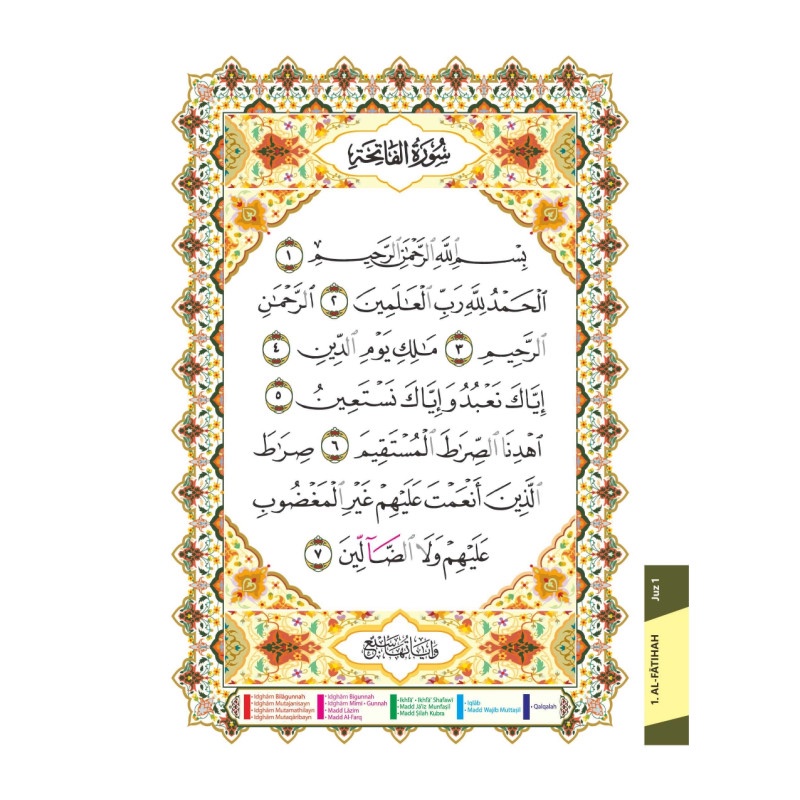 سُورَةُ الْفَاتِحَةِ
بِسْمِ اللَّهِ الرَّحْمَٰنِ الرَّحِيمِ ١
الْحَمْدُ لِلَّهِ رَبِّ الْعَالَمِينَ ٢ الرَّحْمَٰنِ
الرَّحِيمِ ٣ مَالِكِ يَوْمِ الدِّينِ ٤
إِيَّاكَ نَعْبُدُ وَإِيَّاكَ نَسْتَعِينُ ٥
اهْدِنَا الصِّرَاطَ الْمُسْتَقِيمَ ٦ صِرَاطَ
الَّذِينَ أَنْعَمْتَ عَلَيْهِمْ غَيْرِ الْمَغْضُوبِ
عَلَيْهِمْ وَلَا الضَّآلِّينَ ٧
وَآيَاتُهَا سَبْعٌ
• Idghām Bilāgunnah
• Idghām Mutajanisayn
• Idghām Mutamathilayn
• Idghām Mutaqāribayn
• Idghām Bigunnah
• Idghām Mīmī • Gunnah
• Madd Lāzim
• Madd Al-Farq
• Ikhfā' • Ikhfā' Shafawī
• Madd Jā'iz Munfaṣil
• Madd Ṣilah Kubra
• Iqlāb
• Madd Wajib Muttaṣil
• Qalqalah
Juz 1
1. AL-FĀTIHAH